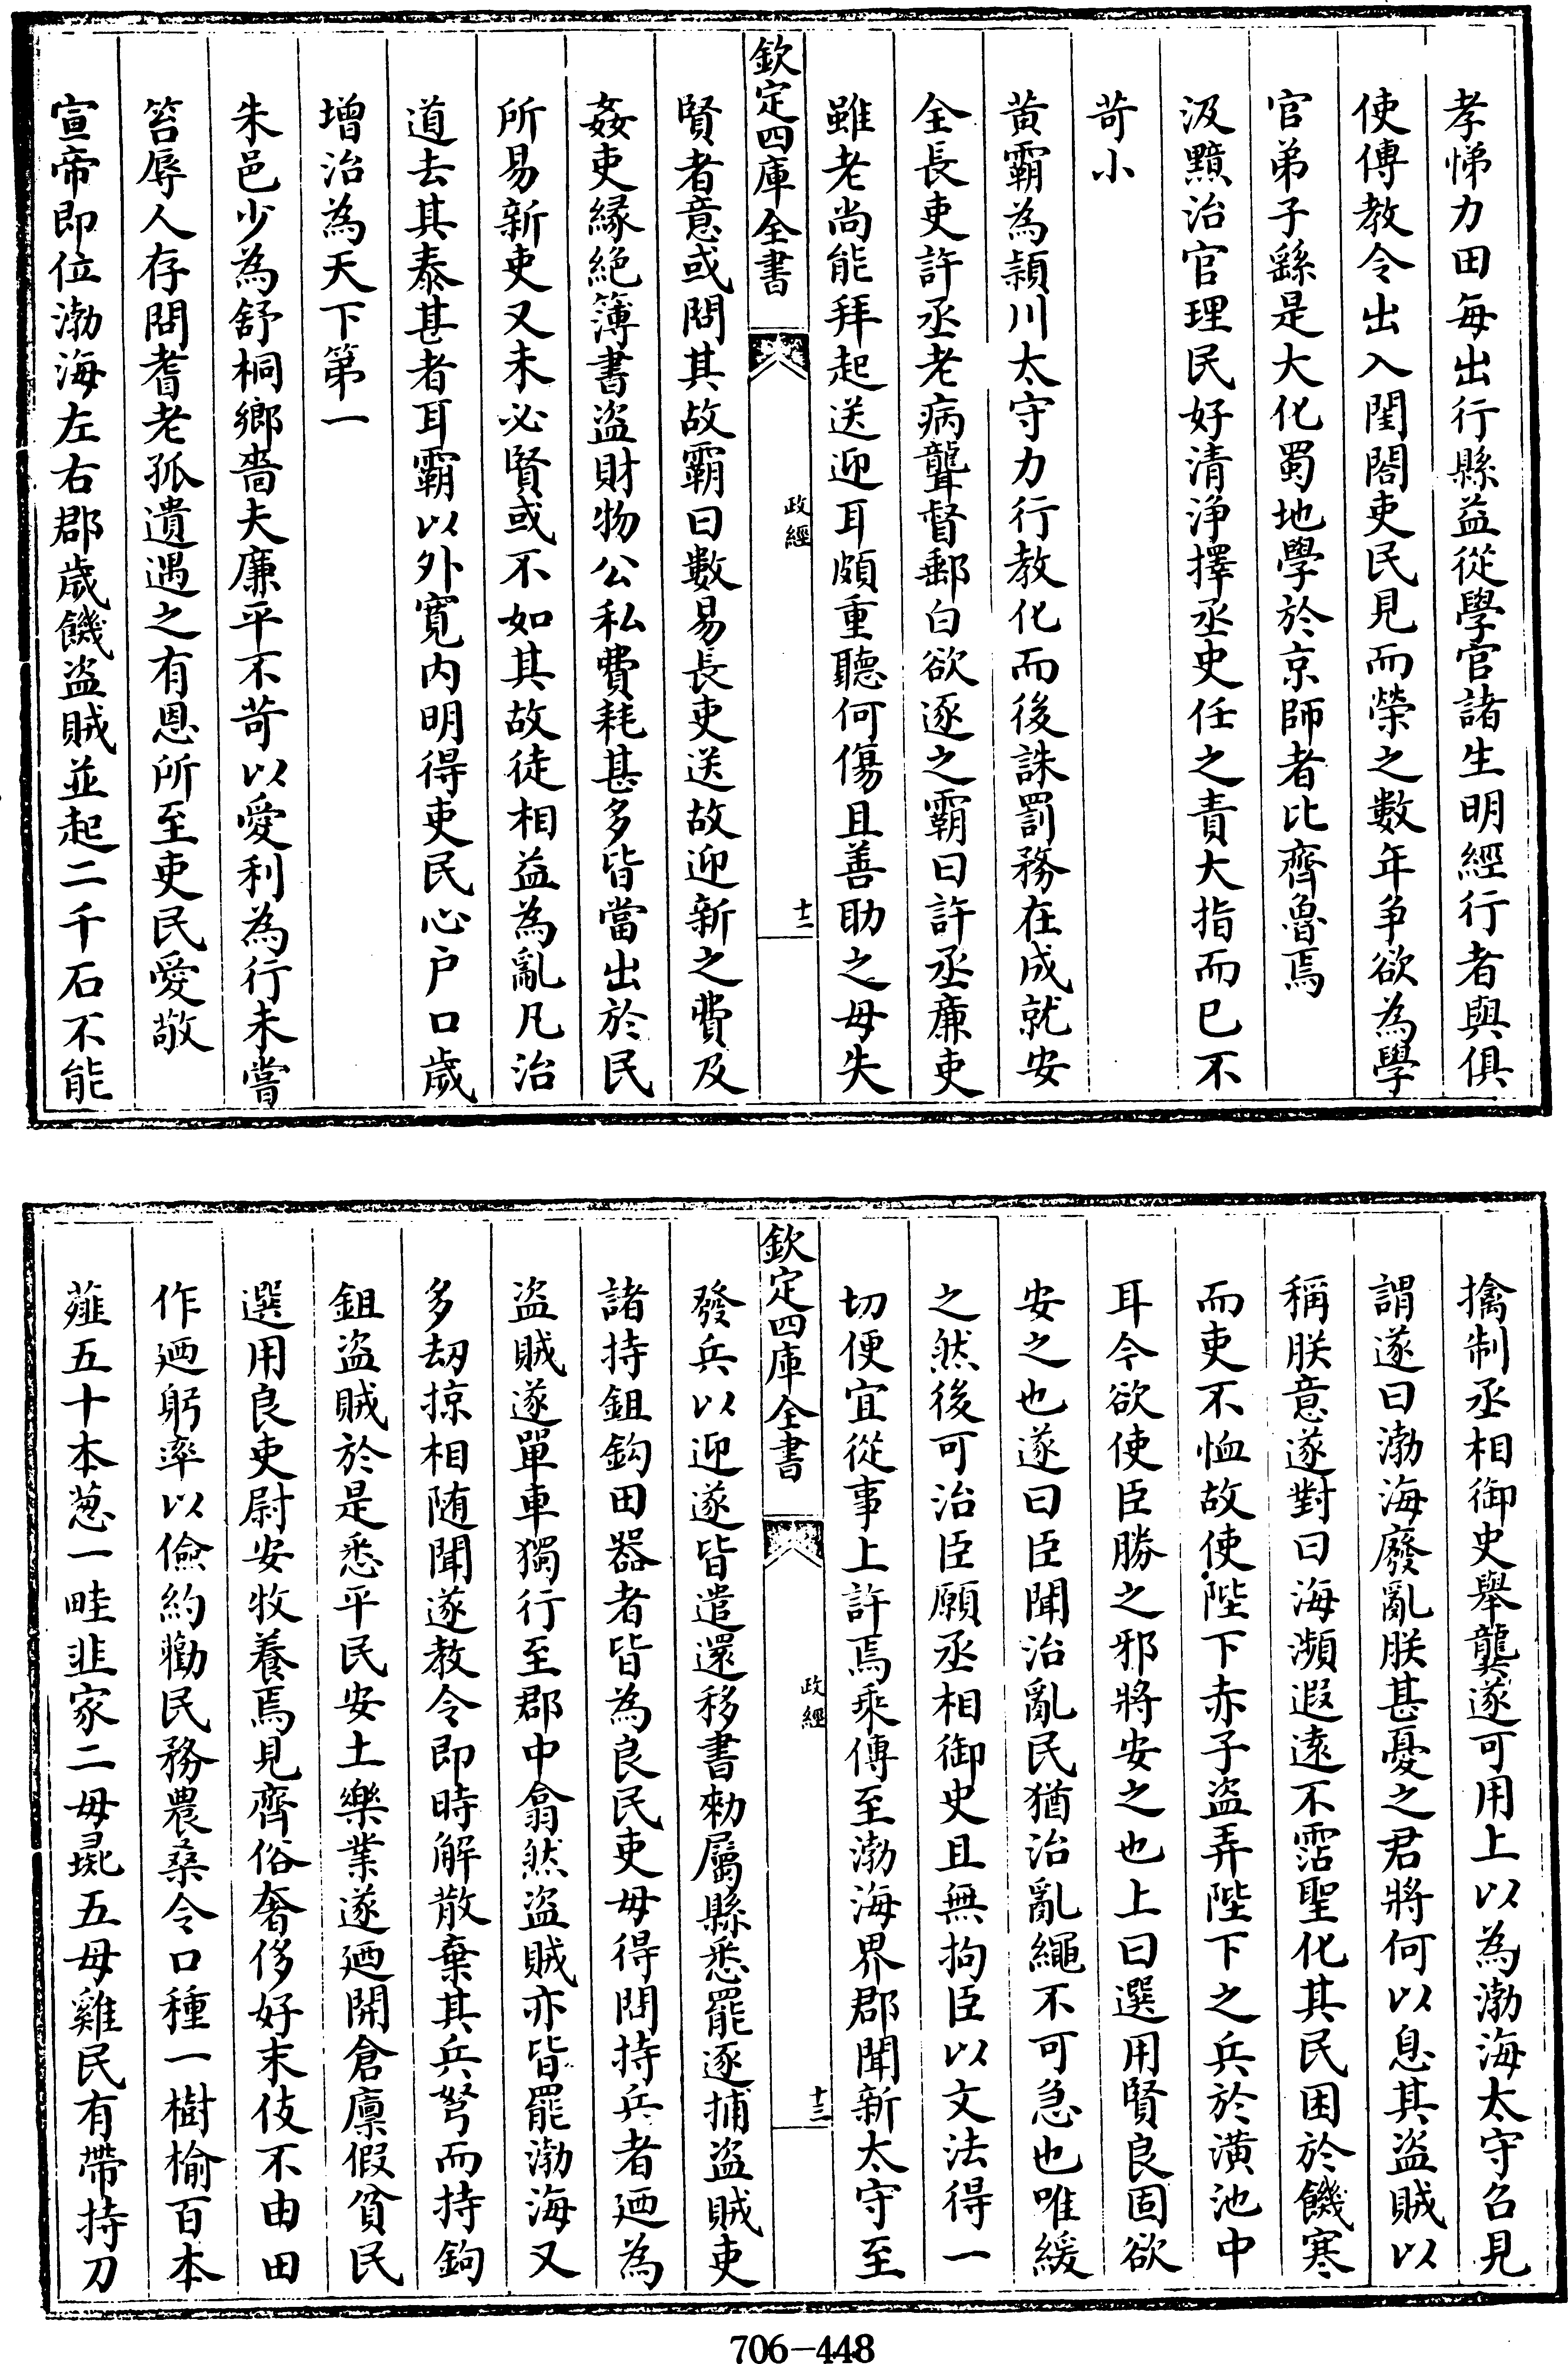 孝悌力田每出行縣益從學官諸生明經行者與俱
使傳教令出入閨閤吏民見而榮之數年爭欲為學
官弟子繇是大化蜀地學於京師者比齊魯焉
汲黯治官理民好清淨擇丞史任之責大指而已不
苛小
黃霸為頴川太守力行教化而後誅罰務在成就安
全長吏許丞老病聾督郵白欲逐之霸曰許丞廉吏
雖老尚能拜起送迎耳頗重聽何傷且善助之毋失
欽定四庫全書
政經
十二
賢者意或問其故霸曰數易長吏送故迎新之費及
姦吏緣絶簿書盜財物公私費耗甚多皆當出於民
所易新吏又未必賢或不如其故徒相益為亂凡治
道去其泰甚者耳霸以外寬內明得吏民心户口歲
增治為天下第一
朱邑少為舒桐鄉嗇夫廉平不苛以愛利為行未嘗
笞辱人存問耆老孤遺遇之有恩所至吏民愛敬
宣帝即位渤海左右郡歲饑盜賊並起二千石不能
擒制丞相御史舉龔遂可用上以為渤海太守召見
謂遂曰渤海廢亂朕甚憂之君將何以息其盜賊以
稱朕意遂對曰海瀕遐遠不霑聖化其民困於饑寒
而吏不恤故使陛下赤子盜弄陛下之兵於潢池中
耳今欲使臣勝之邪將安之也上曰選用賢良固欲
安之也遂曰臣聞治亂民猶治亂繩不可急也唯緩
之然後可治臣願丞相御史且無拘臣以文法得一
切便宜從事上許焉乘傳至渤海界郡聞新太守至
欽定四庫全書
政經
十三
發兵以迎遂皆遣還移書勑屬縣悉罷逐捕盜賊吏
諸持鉏鈎田器者皆為良民吏毋得問持兵者廼為
盜賊遂單車獨行至郡中翕然盜賊亦皆罷渤海又
多刼掠相随聞遂教令即時解散棄其兵弩而持鉤
鉏盜賊於是悉平民安土樂業遂廼開倉廩假貧民
選用良吏尉安牧養焉見齊俗奢侈好末伎不由田
作廼躬率以儉約勸民務農桑令口種一樹榆百本
薤五十本葱一畦韭家二母彘五母雞民有帶持刀
706-448